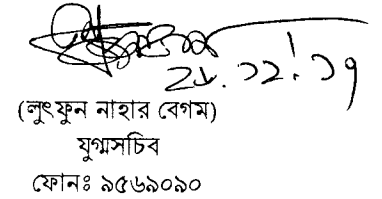 ২৮.১২.১৭
(লুৎফুন নাহার বেগম)
যুগ্মসচিব
ফোনঃ ৯৫৬৯০৯০